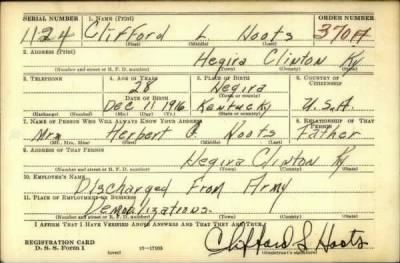 SERIAL NUMBER 1. NAME (Print) ORDER NUMBER
1124 Clifford L Hoots 370A
(First) (Middle) (Last)
2. ADDRESS (Print)
Hegira Clinton Ky
(Number and street or R. F. D. number) (Town) (County) (State)
3. TELEPHONE 4. AGE IN YEARS 5. PLACE OF BIRTH 6. COUNTRY OF CITIZENSHIP
28 Hegira
DATE OF BIRTH (Town or county)
Dec 11 1916 Kentucky U.S.A.
(Exchange) (Number) (Mo.) (Day) (Yr.) (State or country)
7. NAME OF PERSON WHO WILL ALWAYS KNOW YOUR ADDRESS 8. RELATIONSHIP OF THAT PERSON
Herbert Hoots Father
(Mr., Mrs., Miss) (First) (Middle) (Last)
9. ADDRESS OF THAT PERSON
Hegira Clinton Ky
(Number and street or R. F. D. number) (Town) (County) (State)
10. EMPLOYER'S NAME
Discharged From Army
11. PLACE OF EMPLOYMENT OR BUSINESS
Demobilizations.
(Number and street or R. F. D. number) (Town) (County) (State)
I AFFIRM THAT I HAVE VERIFIED ABOVE ANSWERS AND THAT THEY ARE TRUE.
REGISTRATION CARD
D. S. S. Form 1 (over) Clifford L Hoots
(Registrant's signature)